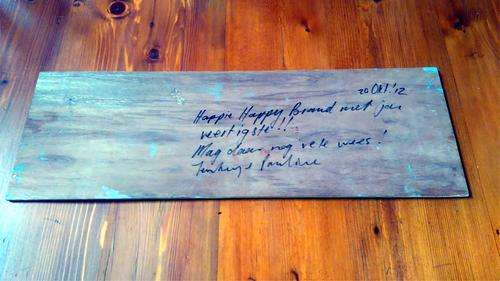 20 Okt. '12
Happie Happy Brand met jou
veertigste!!
Mag daar nog vele wees!